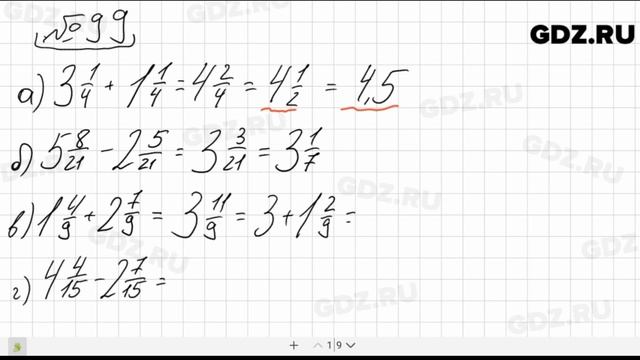 №99
GDZ.RU
а) 3 1/4 + 1 1/4 = 4 2/4 = 4 1/2 = 4,5
б) 5 8/21 - 2 5/21 = 3 3/21 = 3 1/7
в) 1 4/9 + 2 7/9 = 3 11/9 = 3 + 1 2/9 =
г) 4 4/15 - 2 7/15 =
GDZ.RU
GDZ.RU
GDZ.RU
GDZ.RU
GDZ.RU
GDZ.RU
GDZ.RU
+ 1|9